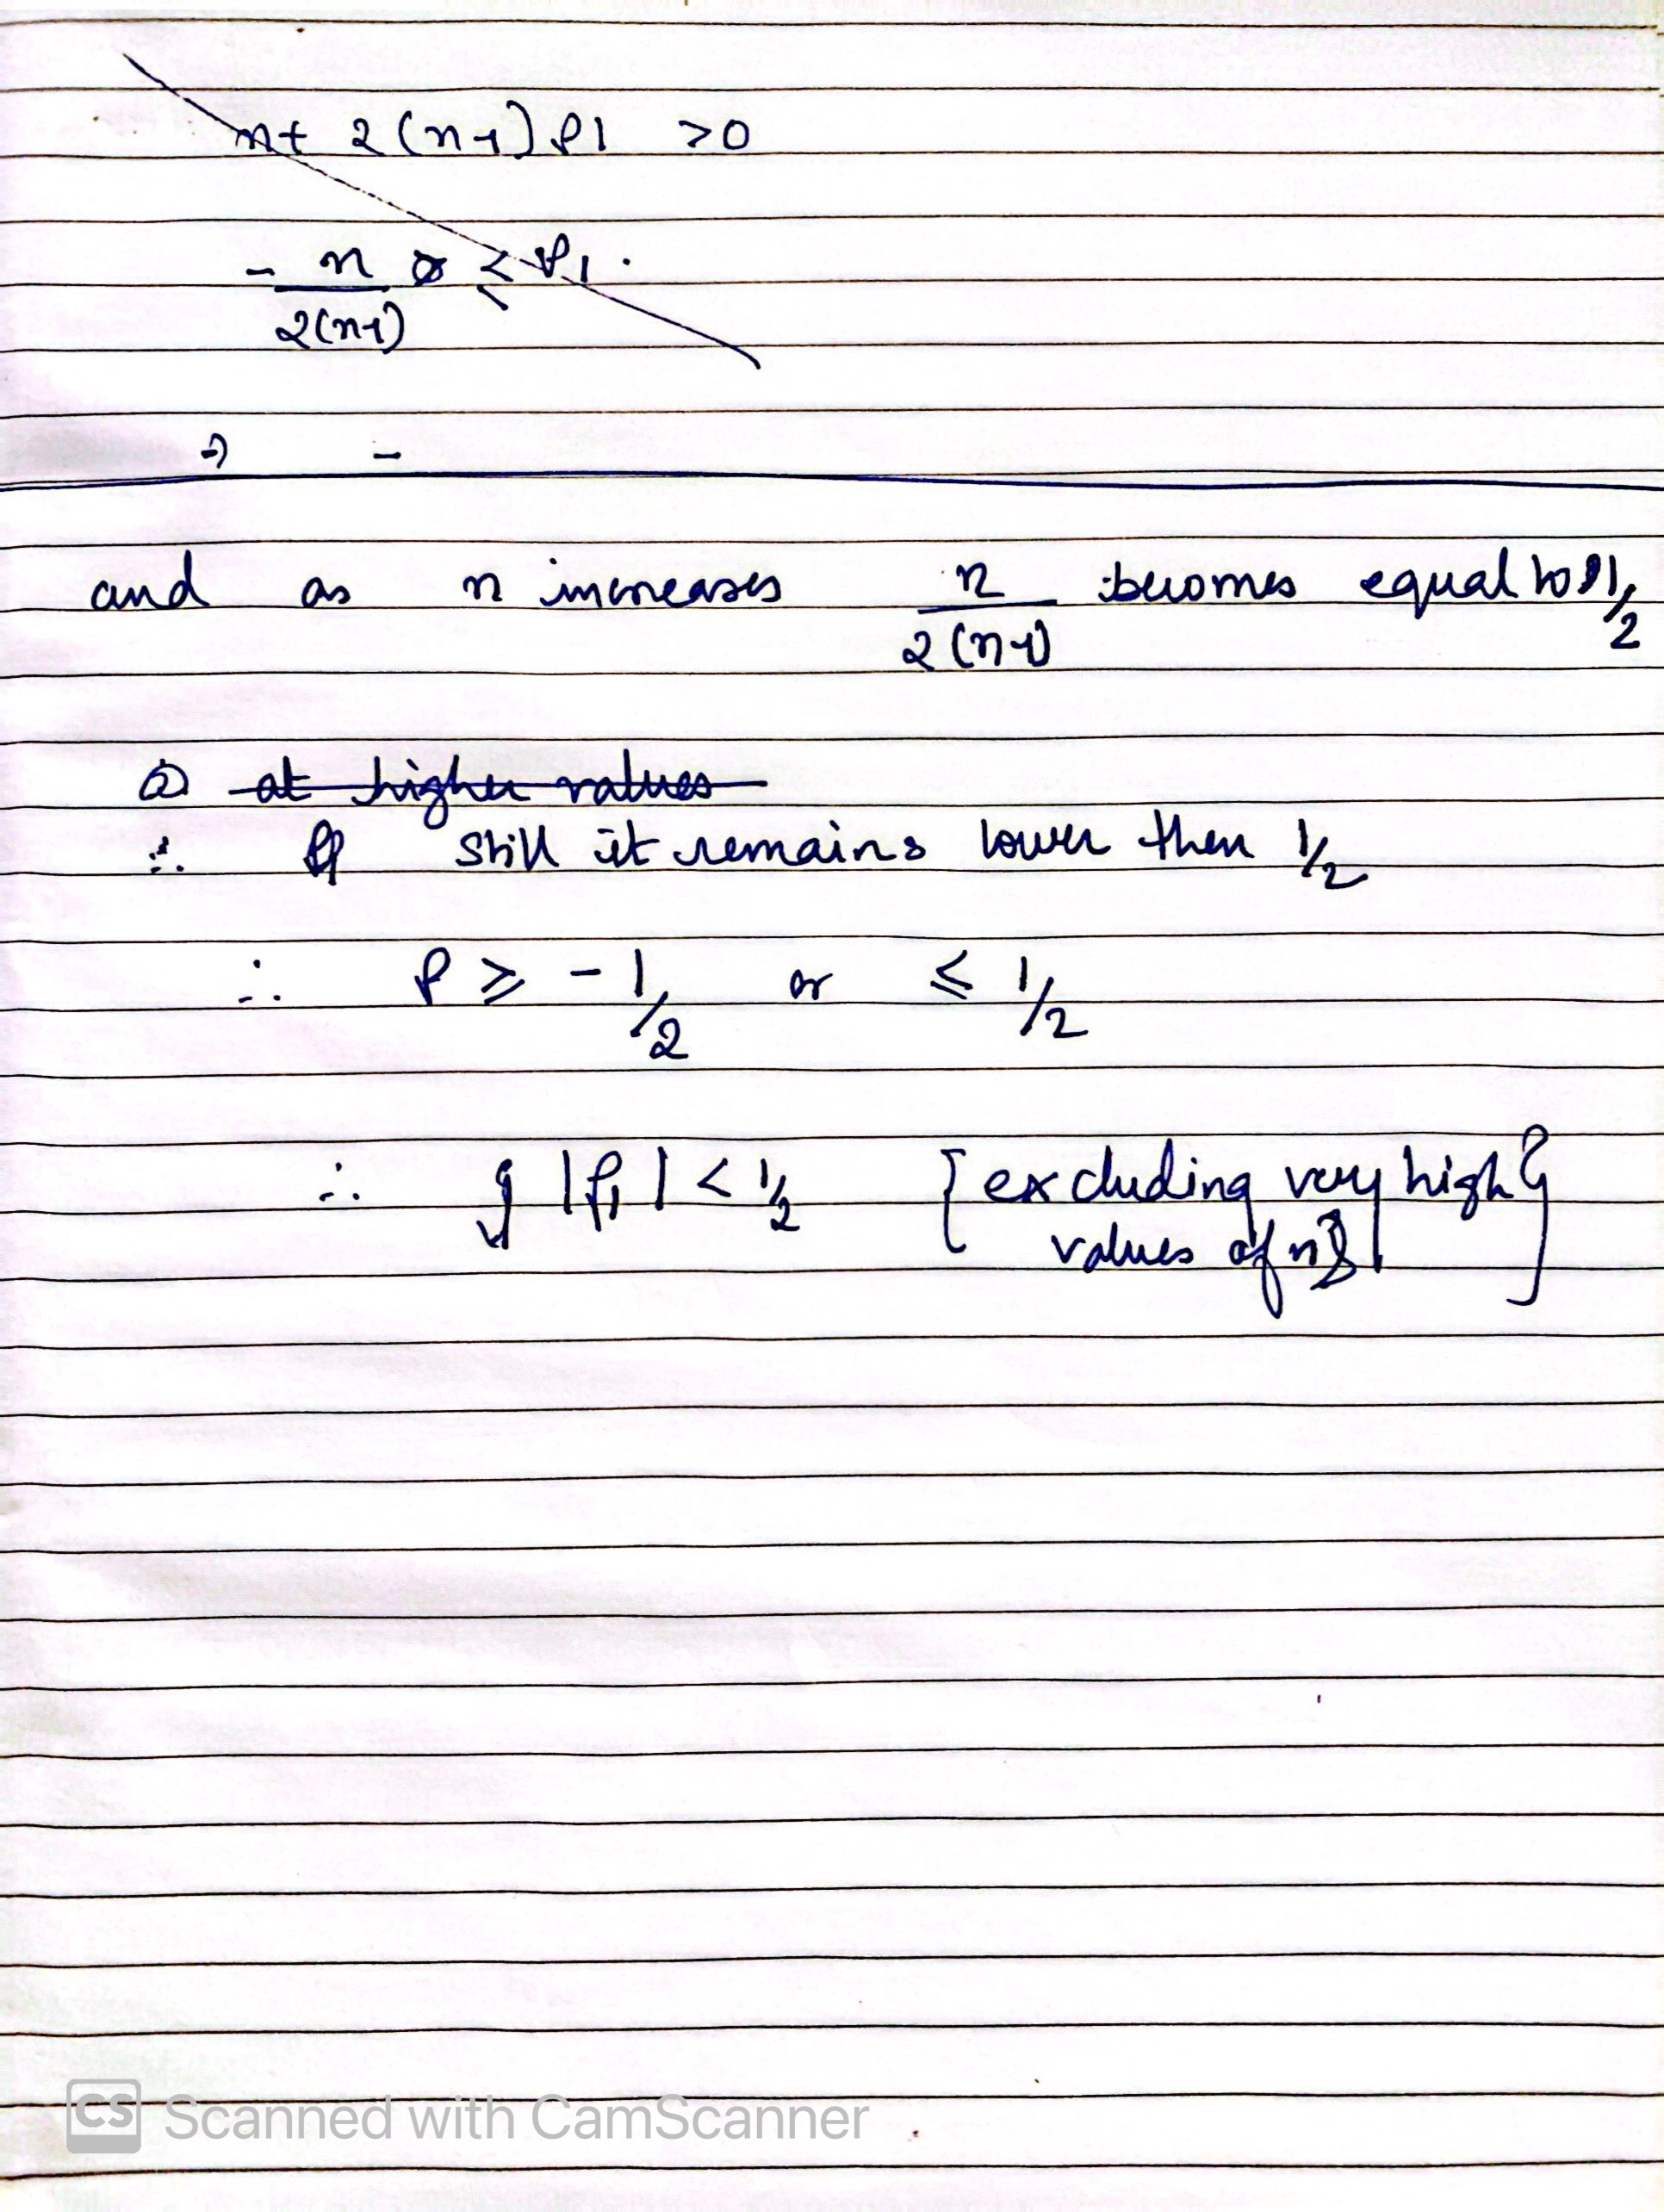 n + 2(n-1) ρ1 > 0
- n/2(n-1) ≤ ρ1.
⇒ -
and as n increases n/2(n-1) becomes equal to 1/2
at higher values
∴ still it remains lower then 1/2
∴ ρ ≥ -1/2 or ≤ 1/2
∴ |ρ1| < 1/2 {excluding very high
values of n}
CS Scanned with CamScanner